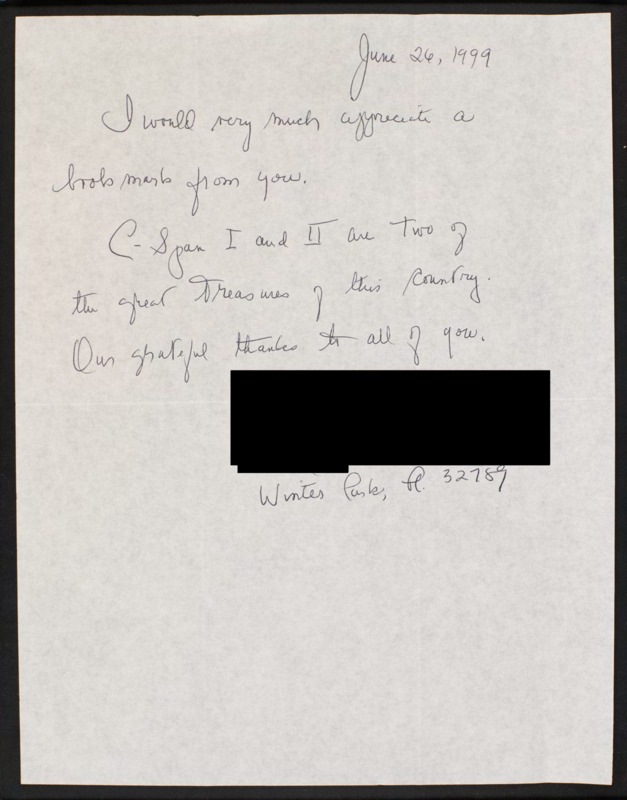 June 26, 1999
I would very much appreciate a
book mark from you.
C-Span I and II are two of
the great treasures of this country.
Our grateful thanks to all of you.
Winter Park, Fl. 32789